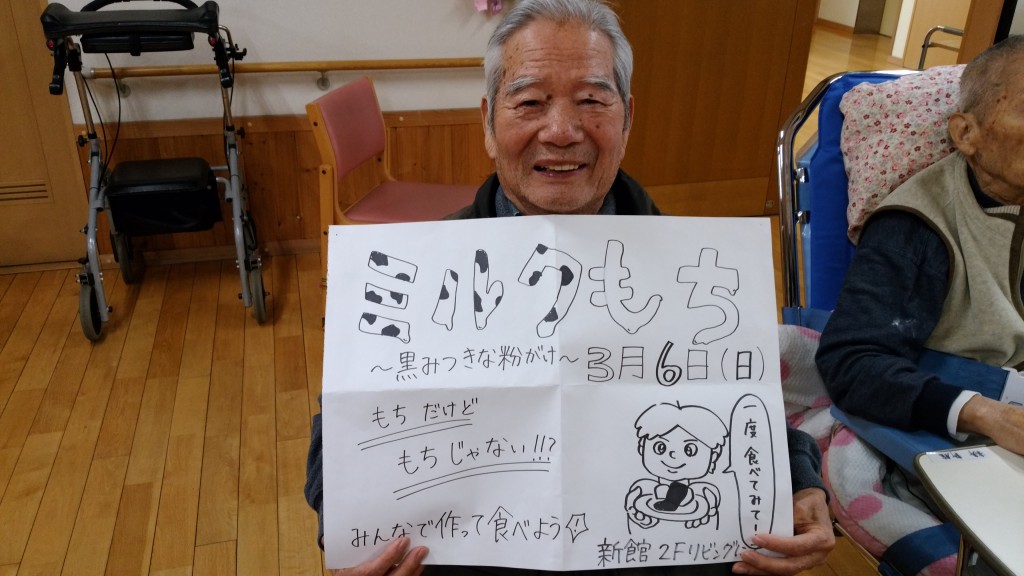 ミルクもち
〜黒みつきな粉がけ〜 3月6日(日)
もちだけど
もちじゃない!!?
一度食べてみて〜
みんなで作って食べよう!
新館 2Fリビング